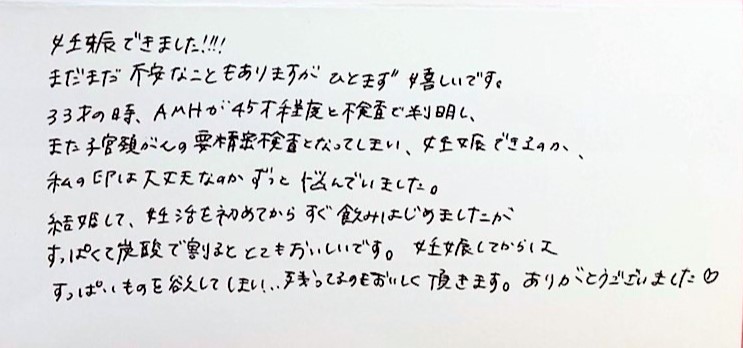 妊娠できました!!!!
まだまだ不安なこともありますがひとまず嬉しいです。
33才の時、AMHが45才程度と検査で判明し、
また子宮頸がんの要精密検査となってしまい、妊娠できるのか、
私の体は大丈夫なのかずっと悩んでいました。
結婚して、妊活を初めてからすぐ飲みはじめましたが
すっぱくて炭酸で割るととてもおいしいです。妊娠してからは
すっぱいものを欲してしまい、、残ってるのもおいしく頂きます。ありがとうございました♡